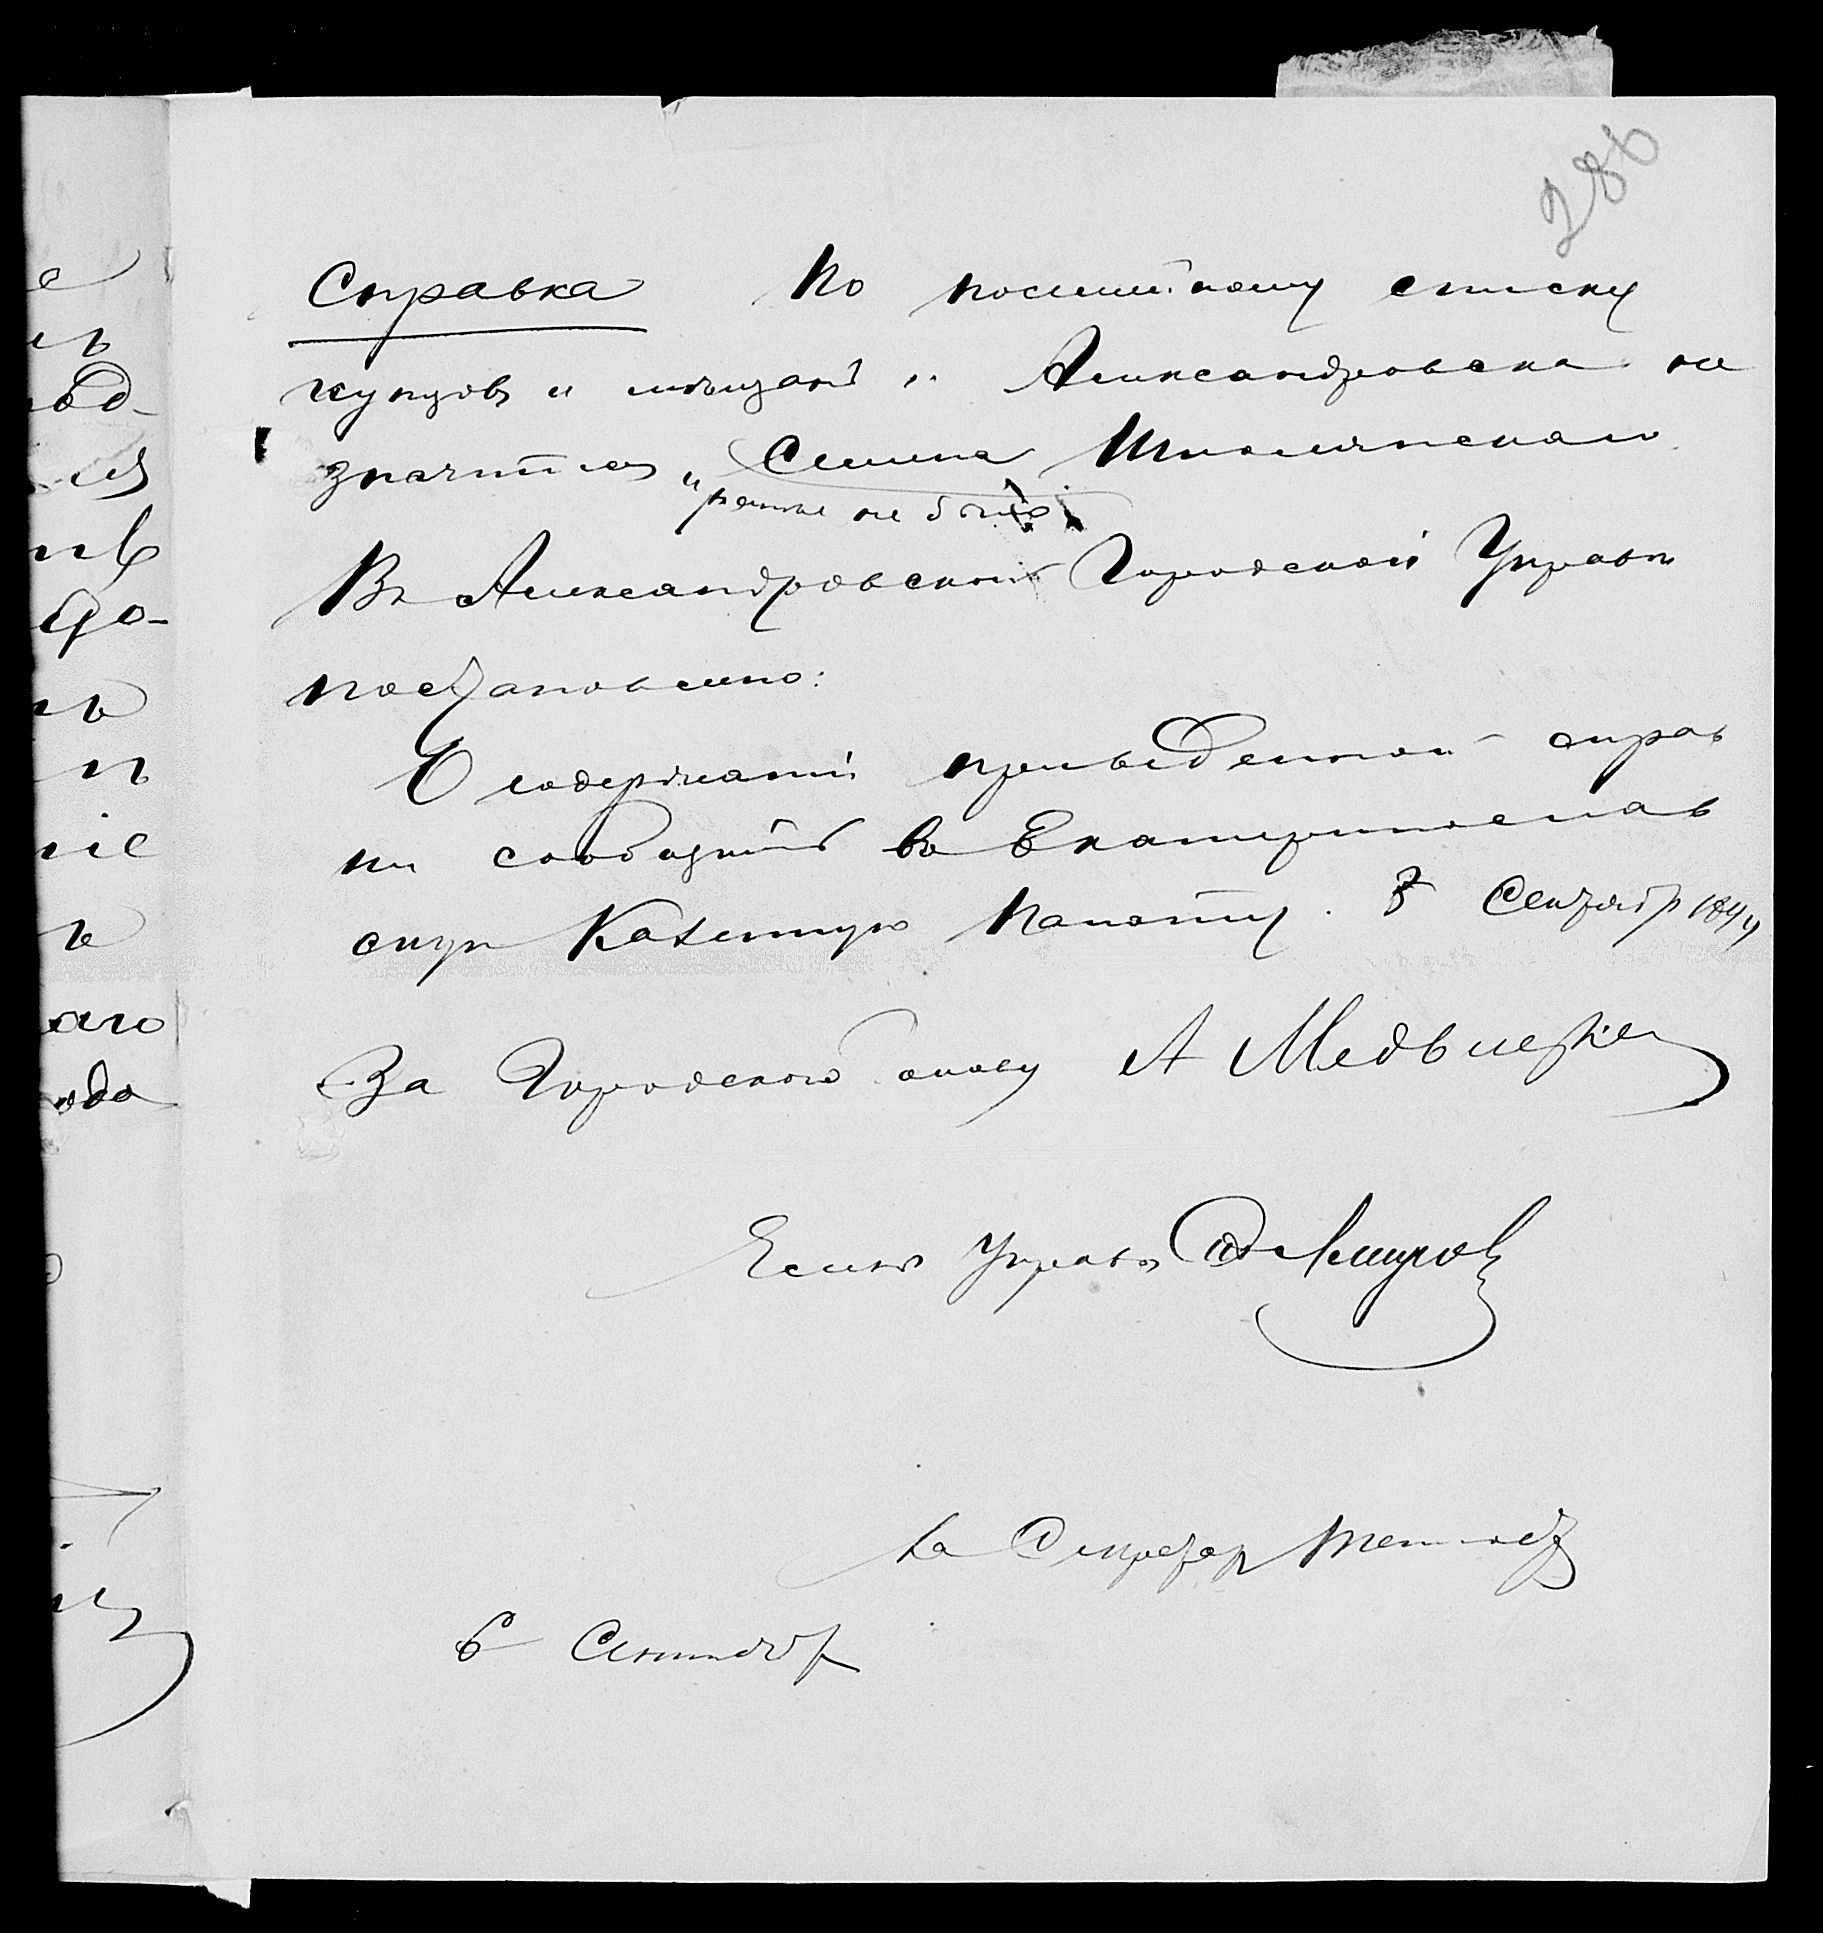 286
Справка По посемейному списку
купцовъ и мѣщанъ г. Александровска не
значится Семена Школьнскаго
и ранѣе не было
Въ Александровской Городской Управѣ
постановлено:
О содержаніи приведенной справ
ки сообщить въ Екатеринослав
скую Казенную Палату. Сентября
За Городского Голову А
Членъ Управы
За Секретаря
6 Сентября